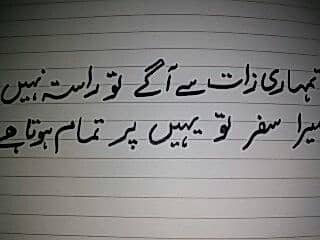 تمہاری زات سے آگے تو راستہ نہیں
میرا سفر تو یہیں پر تمام ہوتا ہے